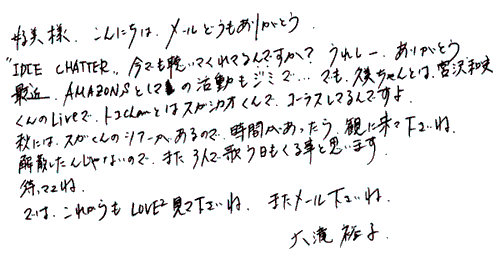 好美様. こんにちは. メールどうもありがとう.
"IDLE CHATTER„ 今でも聴いてくれてるんですか? うれしー. ありがとう
最近. AMAZONSとしての活動もジミで… でも. 美ちゃんとは. 宮沢和史
くんのLiveで. トコchanとはスガシカオくんで. コーラスしてるんですよ.
秋には. スガくんのツアーがあるので. 時間があったら. 観に来て下さいね.
解散したんじゃないので. また3人で歌う日もくる事と思います
待っててね.
では. これからも LOVE² 見て下さいね. またメール下さいね.
大滝裕子.